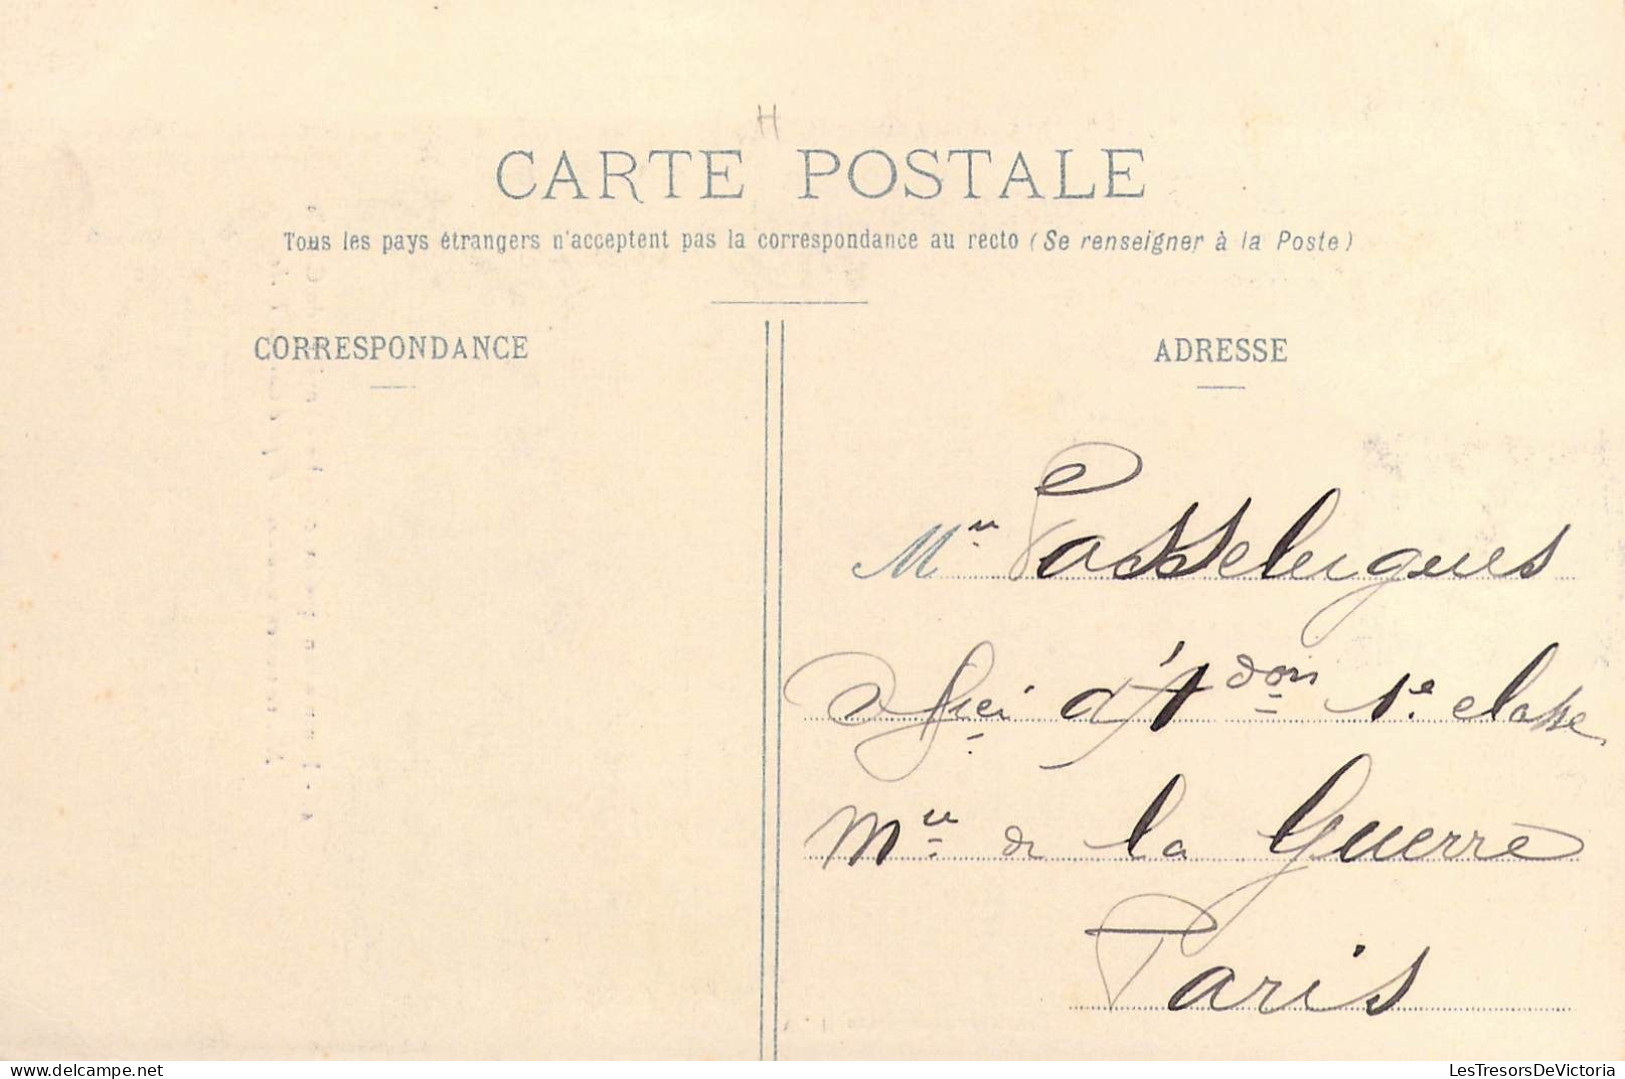 H
CARTE POSTALE
Tous les pays étrangers n'acceptent pas la correspondance au recto (Se renseigner à la Poste)
CORRESPONDANCE
ADRESSE
M
Offici d'Adon 1e classe
Mre de la Guerre
Paris
delcampe.net
LesTresorsDeVictoria